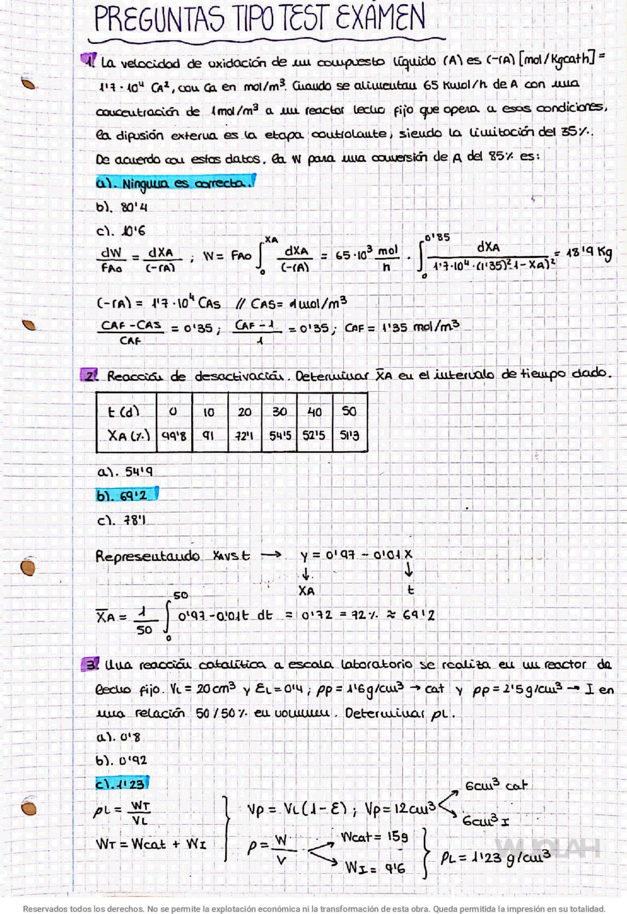 PREGUNTAS TIPO TEST EXÁMEN
1. La velocidad de oxidación de un compuesto líquido (A) es (-rA) [mol/Kgcath] =
1'7 · 10⁴ CA², con Ca en mol/m³. Cuando se alimentan 65 Kmol/h de A con una
concentración de 1mol/m³ a un reactor lecho fijo que opera a esas condiciones,
la difusión externa es la etapa controlante, siendo la limitación del 35%.
De acuerdo con estos datos, la W para una conversión de A del 85% es:
a). Ninguna es correcta.
b). 80'4
c). 10'6
dW/FAO = dXA/(-rA) ; W = FAO ∫₀^XA dXA/(-rA) = 65·10³ mol/h · ∫₀^0'85 dXA/1'7·10⁴·(1'35)²·1-XA)² = 18'9 Kg
(-rA) = 1'7·10⁴ CAS // CAS = 1mol/m³
CAF-CAS/CAF = 0'35 ; CAF-1/1 = 0'35 ; CAF = 1'35 mol/m³
2. Reacción de desactivación. Determinar X̄A en el intervalo de tiempo dado.
t (d) 0 10 20 30 40 50
XA (%) 99'8 91 72'1 54'5 52'5 51'3
a). 54'9
b). 69'2
c). 78'1
Representando XA vs t → y = 0'97 - 0'01 X
XA t
X̄A = 1/50 ∫₀^50 0'97-0'01t dt = 0'72 = 72% ≈ 69'2
3. Una reacción catalítica a escala laboratorio se realiza en un reactor de
lecho fijo. VL = 20cm³ y EL = 0'4 ; ρp = 1'6g/cm³ → cat y ρp = 2'5g/cm³ → I en
una relación 50/50% en volumen. Determinar ρL.
a). 0'8
b). 0'92
c). 1'23
ρL = WT/VL } Vp = VL (1-E) ; Vp = 12cm³ 6cm³ cat
6cm³ I
WT = Wcat + WI ρ = W/V Wcat = 15g
WI = 9'6 } ρL = 1'23 g/cm³
WUOLAH
Reservados todos los derechos. No se permite la explotación económica ni la transformación de esta obra. Queda permitida la impresión en su totalidad.